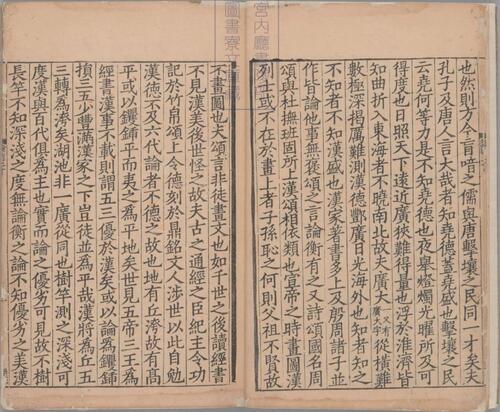 也然則方今盲喑之儒與唐擊壤之民同一才矣夫
孔子及唐人言大哉者知堯德蓋堯盛也擊壤之民
云堯何等力是不知堯德也夜舉燈燭光曜所及可
得度也日照天下遠近廣狹難得量也浮於淮濟皆
知曲折入東海者不曉南北故夫廣大從橫難
數極深揭厲難測漢德酆廣日光海外也知者知之
不知者不知漢盛也漢家著書多上及殷周諸子並
作皆論他事無褒頌之言論衡有之又詩頌國名周
頌與杜撫班固所上漢頌相依類也宣帝之時畫圖漢
列士或不在於畫上者子孫恥之何則父祖不賢故
不畫圖也夫頌言非徒畫文也如千世之後讀經書
不見漢美後世怪之故夫古之通經之臣紀主令功
記於竹帛頌上令德刻於鼎銘文人涉世以此自勉
漢德不及六代論者不德之故也地有丘洿故有高
平或以钁鍤平而夷之為平地矣世見五帝三王為
經書漢事不載則謂五三優於漢矣或以論為钁鍤
損三五少豐滿漢家之下豈徒並為平哉漢將為丘五
三轉為洿矣湖池非一廣狹同也樹竿測之深淺可
度漢與百代俱為主也實而論之優劣可見故不樹
長竿不知深淺之度無論衡之論不知優劣之美漢